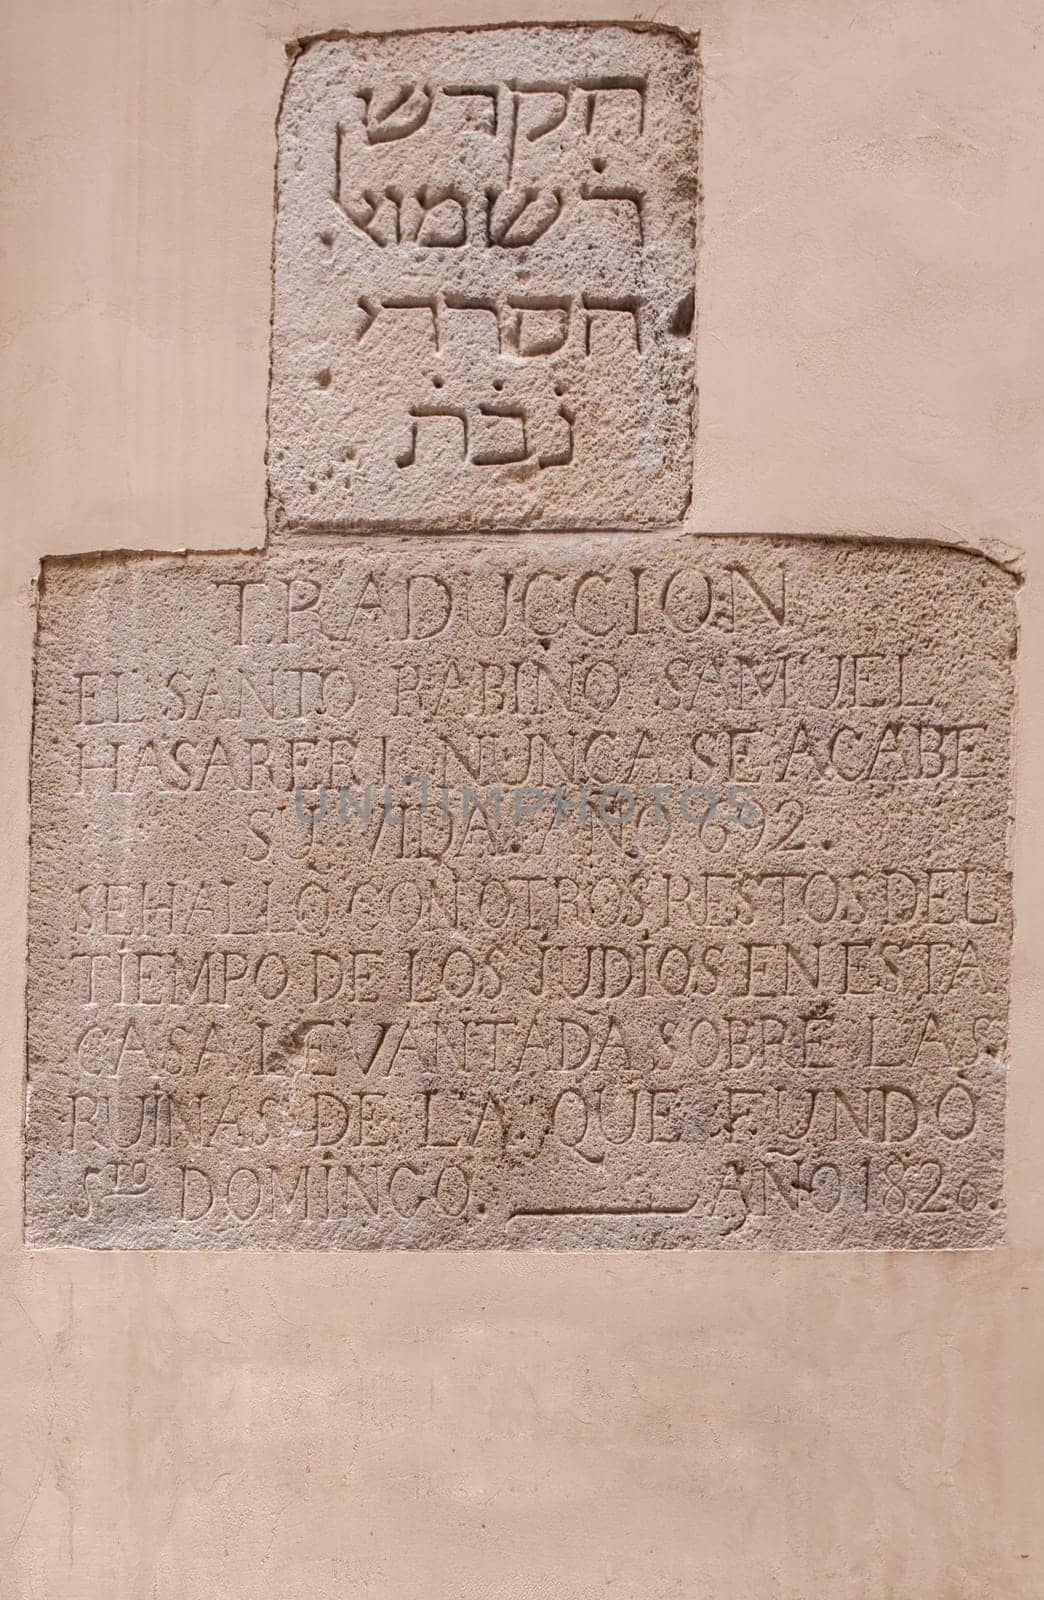 הקדש
ר׳ שמואל
הסרדי
נ׳ב׳ת׳
TRADUCCION
EL SANTO RABINO SAMUEL
HASARERI, NUNCA SE ACABE
SU VIDA. AÑO 692.
SE HALLÓ CON OTROS RESTOS DEL
TÍEMPO DE LOS JUDÍOS EN ESTA
CASA LEVANTADA SOBRE LAS
RUÍNAS DE LA QUE FUNDÓ
STO DOMÍNGO. AÑO 1820.
UNLIMPHOTOS